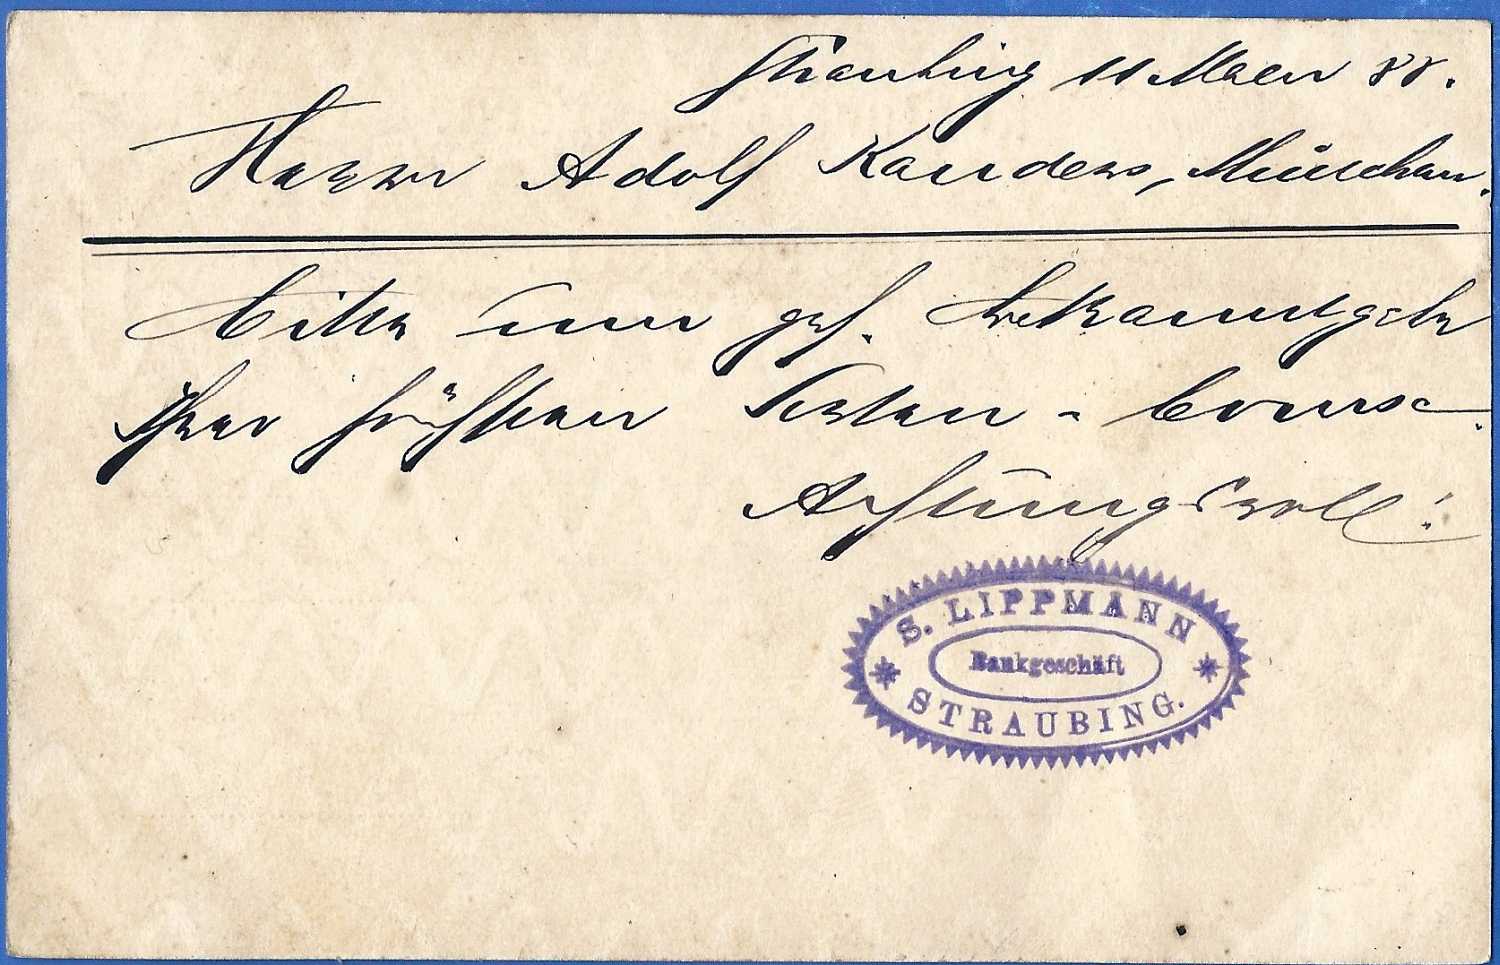 Straubing 11 März 88.
Herrn Adolf Kanders, München.
Bitte um gef. Bekanntgabe
Ihrer früheren - Course.
Achtungsvoll!
S. LIPPMANN
Bankgeschäft
STRAUBING.